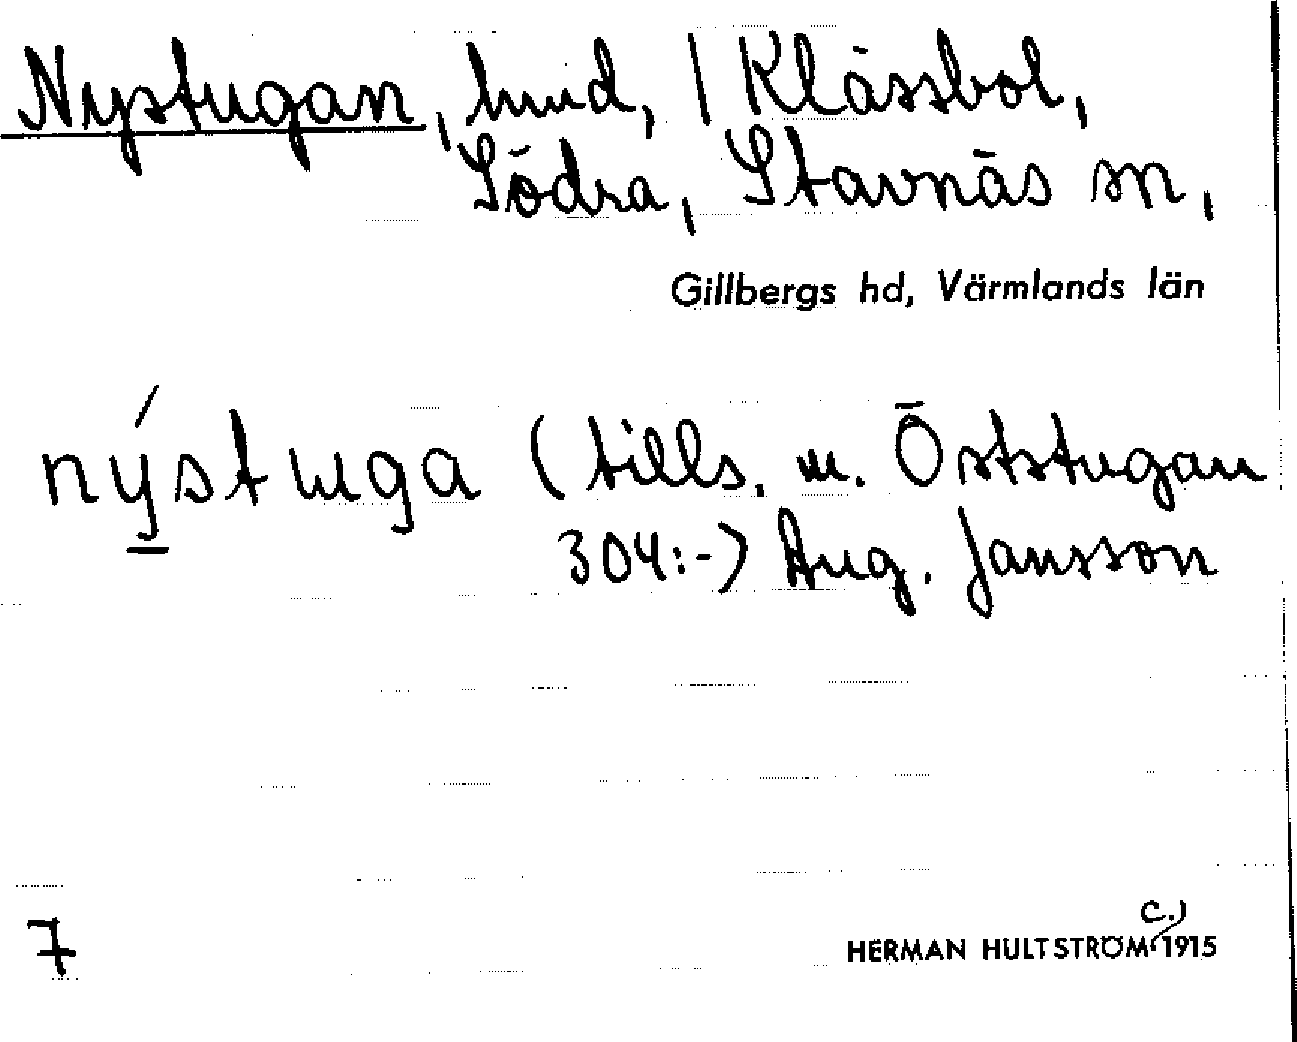 Nystugan, hmd, / Klässbol,
Södra, Stavnäs sn,
Gillbergs hd, Värmlands län
nýstuga (tills. m. Öststugan
304:-) Aug. Jansson
7
c.)
HERMAN HULTSTRÖM 1915